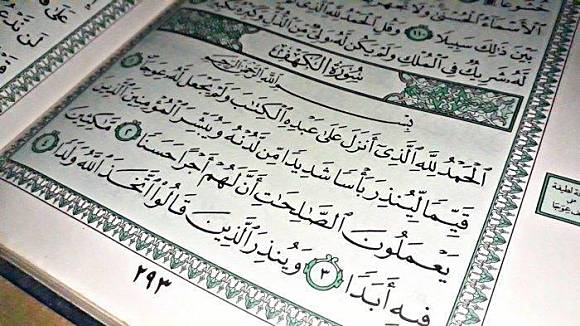 ٱلْأَسْمَآءُ ٱلْحُسْنَىٰ وَلَا
بَيْنَ ذَٰلِكَ سَبِيلًا ١١٠ وَقُلِ ٱلْحَمْدُ لِلَّهِ ٱلَّذِى
لَّهُۥ شَرِيكٌ فِى ٱلْمُلْكِ وَلَمْ يَكُن لَّهُۥ وَلِىٌّ مِّنَ ٱلذُّلِّ وَكَبِّرْهُ تَكْبِيرًۢا
سُورَةُ الكَهْفِ
بِسْمِ ٱللَّهِ ٱلرَّحْمَٰنِ ٱلرَّحِيمِ
ٱلْحَمْدُ لِلَّهِ ٱلَّذِىٓ أَنزَلَ عَلَىٰ عَبْدِهِ ٱلْكِتَٰبَ وَلَمْ يَجْعَل لَّهُۥ عِوَجَا ١
قَيِّمًا لِّيُنذِرَ بَأْسًا شَدِيدًا مِّن لَّدُنْهُ وَيُبَشِّرَ ٱلْمُؤْمِنِينَ ٱلَّذِينَ
يَعْمَلُونَ ٱلصَّٰلِحَٰتِ أَنَّ لَهُمْ أَجْرًا حَسَنًا ٢ مَّٰكِثِينَ
فِيهِ أَبَدًا ٣ وَيُنذِرَ ٱلَّذِينَ قَالُوا۟ ٱتَّخَذَ ٱللَّهُ وَلَدًا ٤
٢٩٣